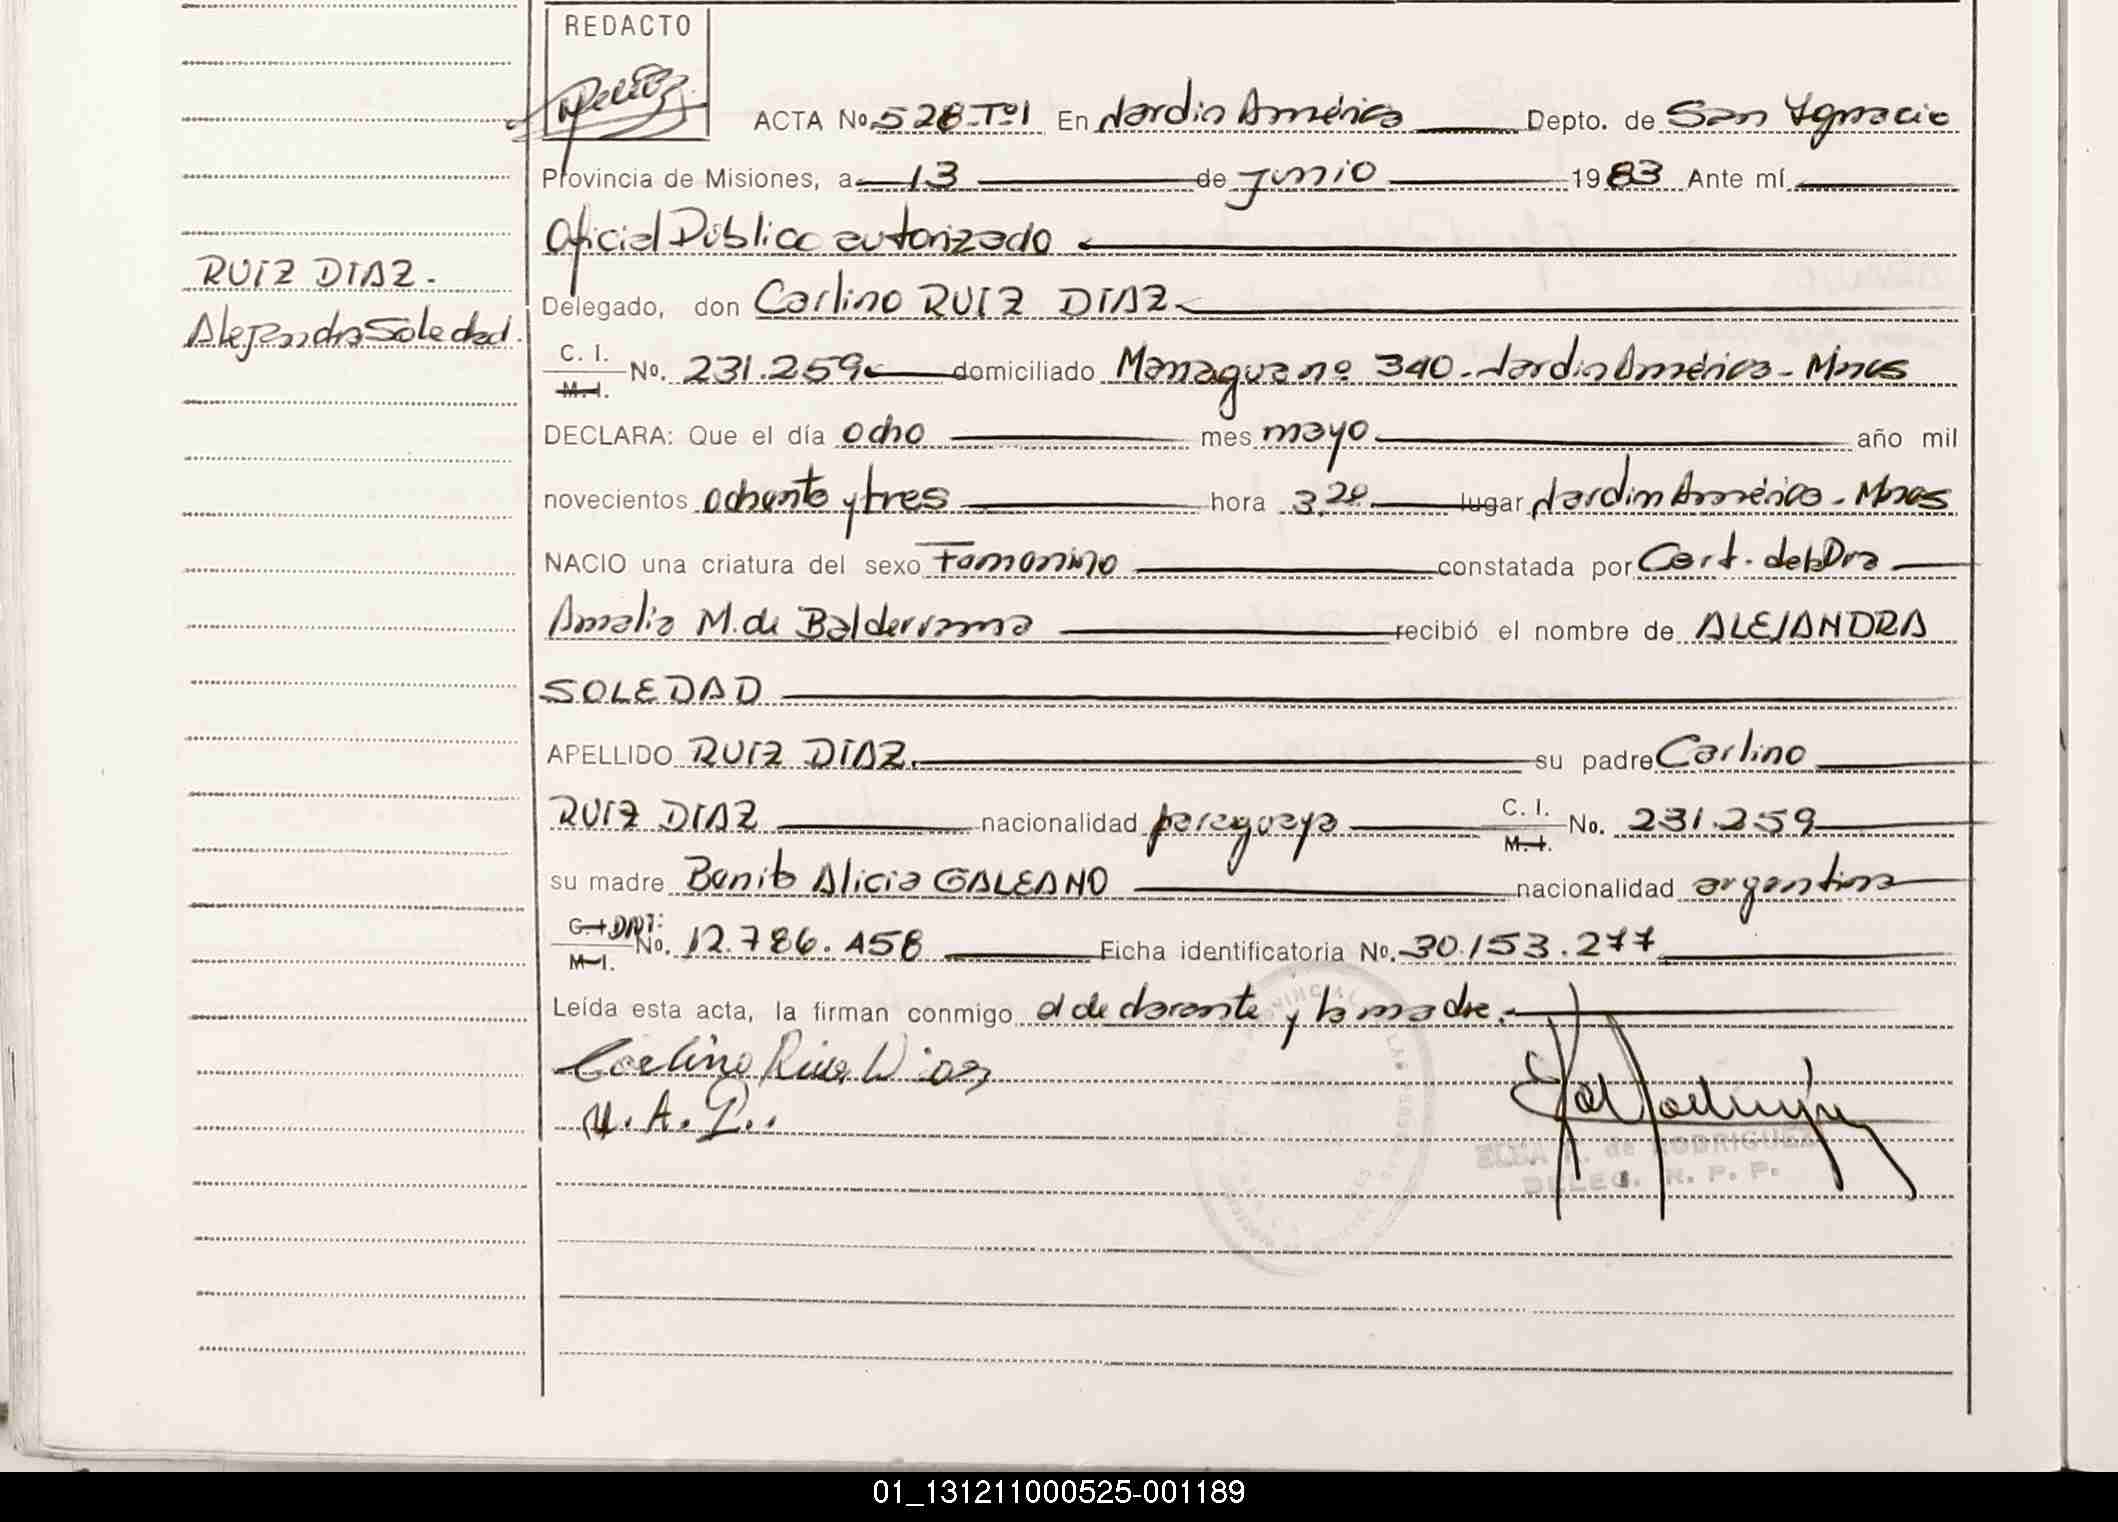 REDACTO
ACTA No. 528-Tº1 En Jardin América Depto. de San Ignacio
Provincia de Misiones, a 13 de junio 1983 Ante mí
Oficial Público autorizado
RUIZ DIAZ.
Delegado, don Carlino RUIZ DIAZ
Alejandra Soledad.
C. I.
M. I. No. 231.259 domiciliado Managua nº 340 - Jardin América - Mnes
DECLARA: Que el día ocho mes mayo año mil
novecientos ochenta y tres hora 3,20 lugar Jardin América - Mnes
NACIO una criatura del sexo Femenino constatada por Cert. de la Dra
Amalia M. de Balderrama recibió el nombre de ALEJANDRA
SOLEDAD
APELLIDO RUIZ DIAZ. su padre Carlino
RUIZ DIAZ nacionalidad paraguaya C. I. M. I. No. 231.259
su madre Benita Alicia GALEANO nacionalidad argentina
C. I. DNI: M. I. No. 12.786.458 Ficha identificatoria No. 30.153.277
Leída esta acta, la firman conmigo el declarante y la madre.
Carlino Ruiz Diaz
ELSA de RODRIGUEZ
DELEG. R. P. P.
01_131211000525-001189